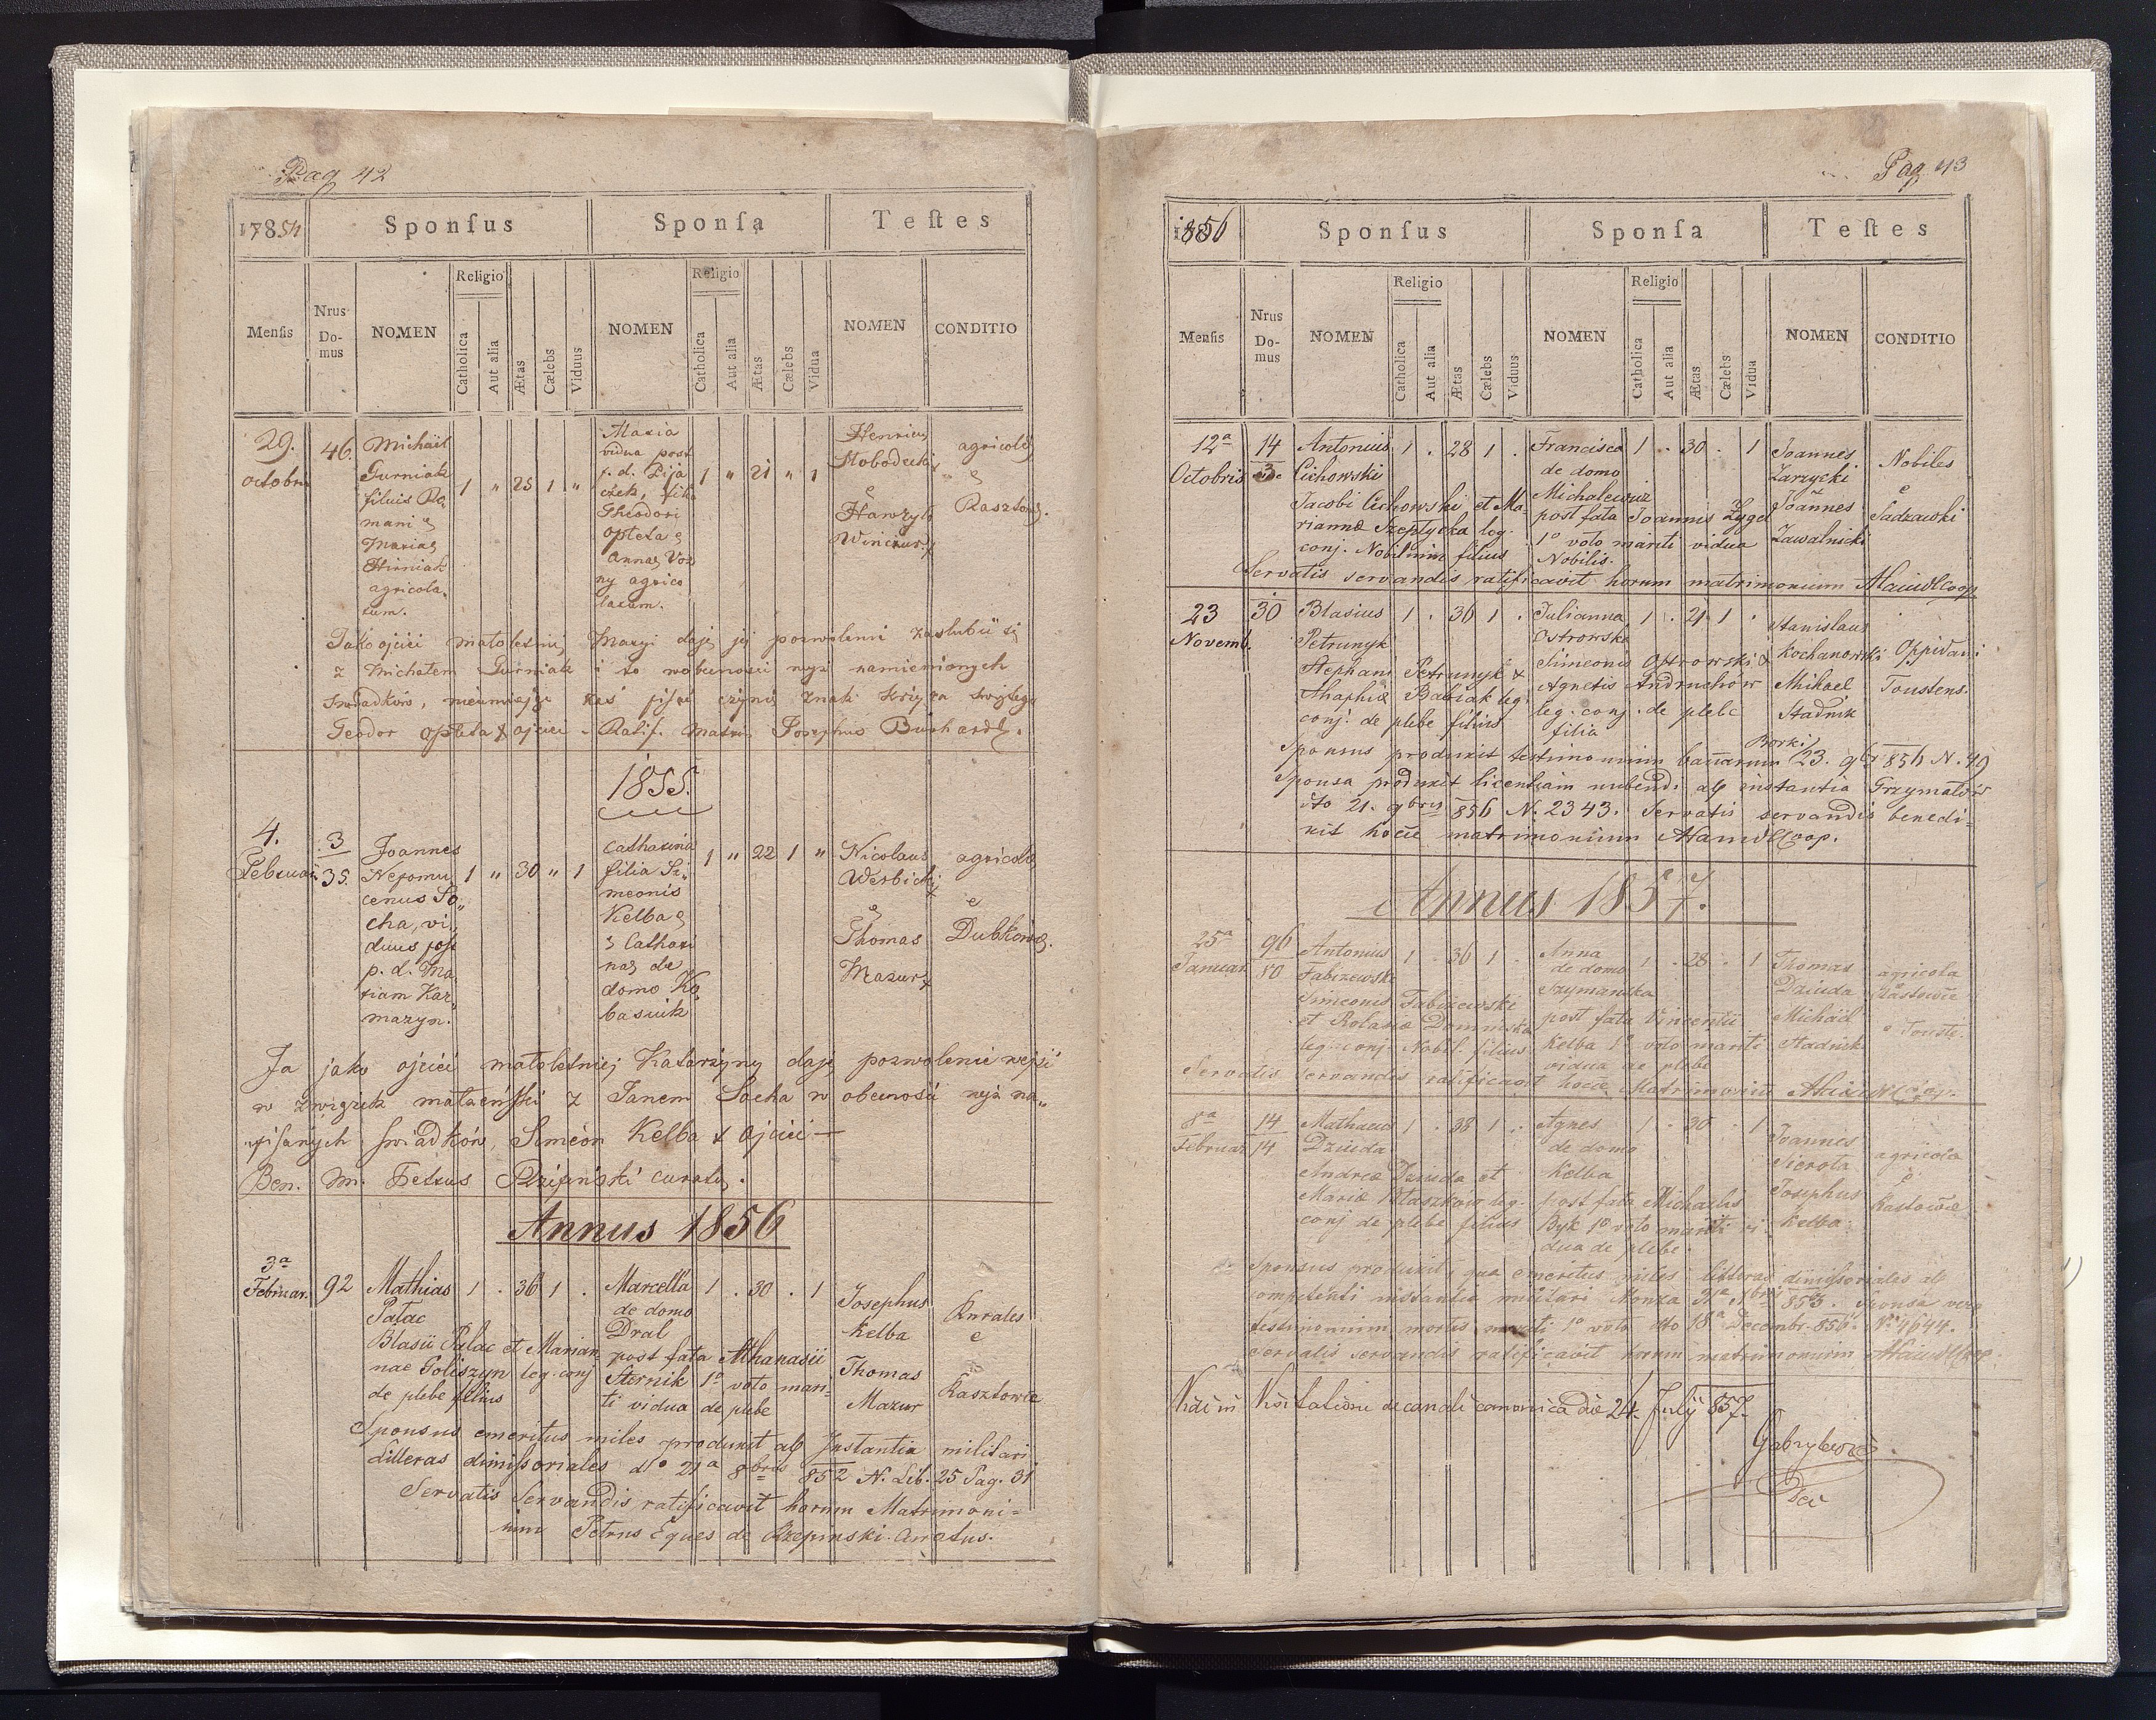 Pag 42
17854 Sponſus Sponſa Teſtes
Menſis Nrus Domus NOMEN Religio Catholica Aut alia Ætas Cælebs Viduus NOMEN Religio Catholica Aut alia Ætas Cælebs Vidua NOMEN CONDITIO
29. octobr. 46.
Michäel
Gurniak
filius Ro,
mani e
Maria
Hirniak
agricola,
rum.
1 " 25 1 "
Maria
vidua post
p. d. Pija
czek, filia
Theodori
Opleta e
Anna Woz
ny agrico
larum.
1 " 21 " 1
Henricus
Slobodecki
e
Hawryło
Winiczur
agricolæ
e
Rasztow.
Jako ojciec małoletniej Maryi daję jej pozwolenie zaslubić się
z Michałem Gurniak i to w obecności wyż namienionych
swiadków, nieumiejąc zaś pisać czynię znak krzyża swiętego
Teodor Opleta + ojciec - Ratif. Matri. Josephus Burhardt.
1855.
4. Februar. 3 35.
Joannes
Nepomu
cenus So,,
cha, vi,,
duus post
p. d. Ma
riam Kar,,
mazyn.
1 " 30 " 1
Catharina
filia Si,,
meonis
Kelba e
Cathari
na de
domo Ko,
basiuk
1 " 22 1 "
Nicolaus
Werbicki
e
Thomas
Mazur +
agricolæ
e
Dubkow.
Ja jako ojciec małoletniej Katarzyny daję pozwolenie wejść
w związek małżeński z Janem Socha w obecność wyż na,,
pisanych swiadków, Simeon Kelba + Ojciec
Ben. M. Petrus Rzepiński curatus.
Annus 1856
3a Februar. 92
Mathias 1 . 36 1 . Marcella 1 . 30 . 1
Pałac
de domo
Dral
Blasii Pałac et Marian
nae Goliszyn leg. conj
de plebe filius
post fata Athanasii
Sternik 1o voto mari
ti vidua de plebe
Josephus
Kelba
Thomas
Mazur
Kurales
e
Kasztowce
Sponsus emeritus miles produxit ab Instantia militari
litteras dimissoriales dto 21a 8bris 852 N. Lib. 25 Pag. 31
Servatis Servandis ratificavit horum Matrimoni=
um Petrus Eques de Rzepinski Curatus.
Pag 43
1856 Sponſus Sponſa Teſtes
Menſis Nrus Domus NOMEN Religio Catholica Aut alia Ætas Cælebs Viduus NOMEN Religio Catholica Aut alia Ætas Cælebs Vidua NOMEN CONDITIO
12a Octobris 14
Antonius 1 . 28 1 . Francisca 1 . 30 . 1
Cichowski
Jacobi Cichowski et Ma
rianna Szeptycka leg.
conj. Nobilium filius
de domo
Michalewicz
post fata Joannis Zygel
1o voto mariti vidua
Nobilis.
Joannes
Zarzycki
Joannes
Zawalnicki
Nobiles
e
Sadzawki
Servatis servandis ratificavit horum matrimonium
23 Novemb. 30
Blasius 1 . 36 1 . Julianna 1 . 21 1 .
Petrunyk
Stephani Petrunyk &
Anaphia Babiak leg.
conj. de plebe filius
Ostrowska
Simeonis Ostrowski &
Agnetis Andruchów
leg. conj. de plebe
filia
Stanislaus
Kochanowski
Mihael
Stadnik
Oppidani
Toustens.
Sponsus produxit testimonium bannorum Borki 23. 9br 856 N. 49
Sponsa produxit licentiam nubendi ab instantia Grzymałów
dto 21. 9bris 856 N. 2343. Servatis servandis benedi=
xit hocce matrimonium
Annus 1857.
25a Januar. 96 80
Antonius 1 . 36 1 . Anna 1 . 28 . 1
Fabizewski
Simeonis Fabizewski
et Rosalia Dominiska
leg. conj. Nobil. filius
de domo
Szymanska
post fata Vincentii
Kelba 1o voto mariti
vidua de plebe
Thomas
Dziuda
Michäel
Stadnik
agricola
Kastowce
e Touste.
Servatis servandis ratificavit hocce Matrimonium
8a Februar. 14 14
Mathaeus 1 . 38 1 . Agnes 1 . 30 . 1
Dziuda
Andrea Dziuda et
Maria Ptaszkow leg.
conj de plebe filius
de domo
Kelba
post fata Michaelis
Byk 1o voto mariti vi
dua de plebe.
Joannes
Sierota
Josephus
Kelba
agricola
e
Kastowce
Sponsus produxit, qua emeritus miles litteras dimissoriales ab
competenti instantia militari Monza 31a 853. Sponsa vero
testimonium mortis mariti 1o voto dto 18a Decembr. 856 No 4644.
Servatis servandis ratificavit horum matrimonium
Vidi in Visitatione decanali canonica die 24. Julij 857.
Gabryelewicz
Dec